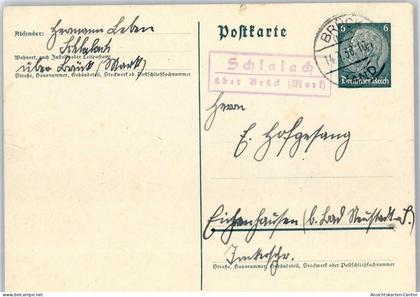 Absender: Hermann Leben
Schlalach
Wohnort, auch Zustell- oder Leitpostamt
über Brück (Mark)
Straße, Hausnummer, Gebäudeteil, Stockwerk od. Postschließfachnummer
Postkarte
BRÜCK
14.
6 6
Deutsches Reich
Schlalach
über Brück (Mark)
Herrn
E. Hofgesang
Eichenhausen (b. Bad Neustadt-S.)
Straße, Hausnummer, Gebäudeteil, Stockwerk oder Postschließfachnummer
Ansichtskarten-Center